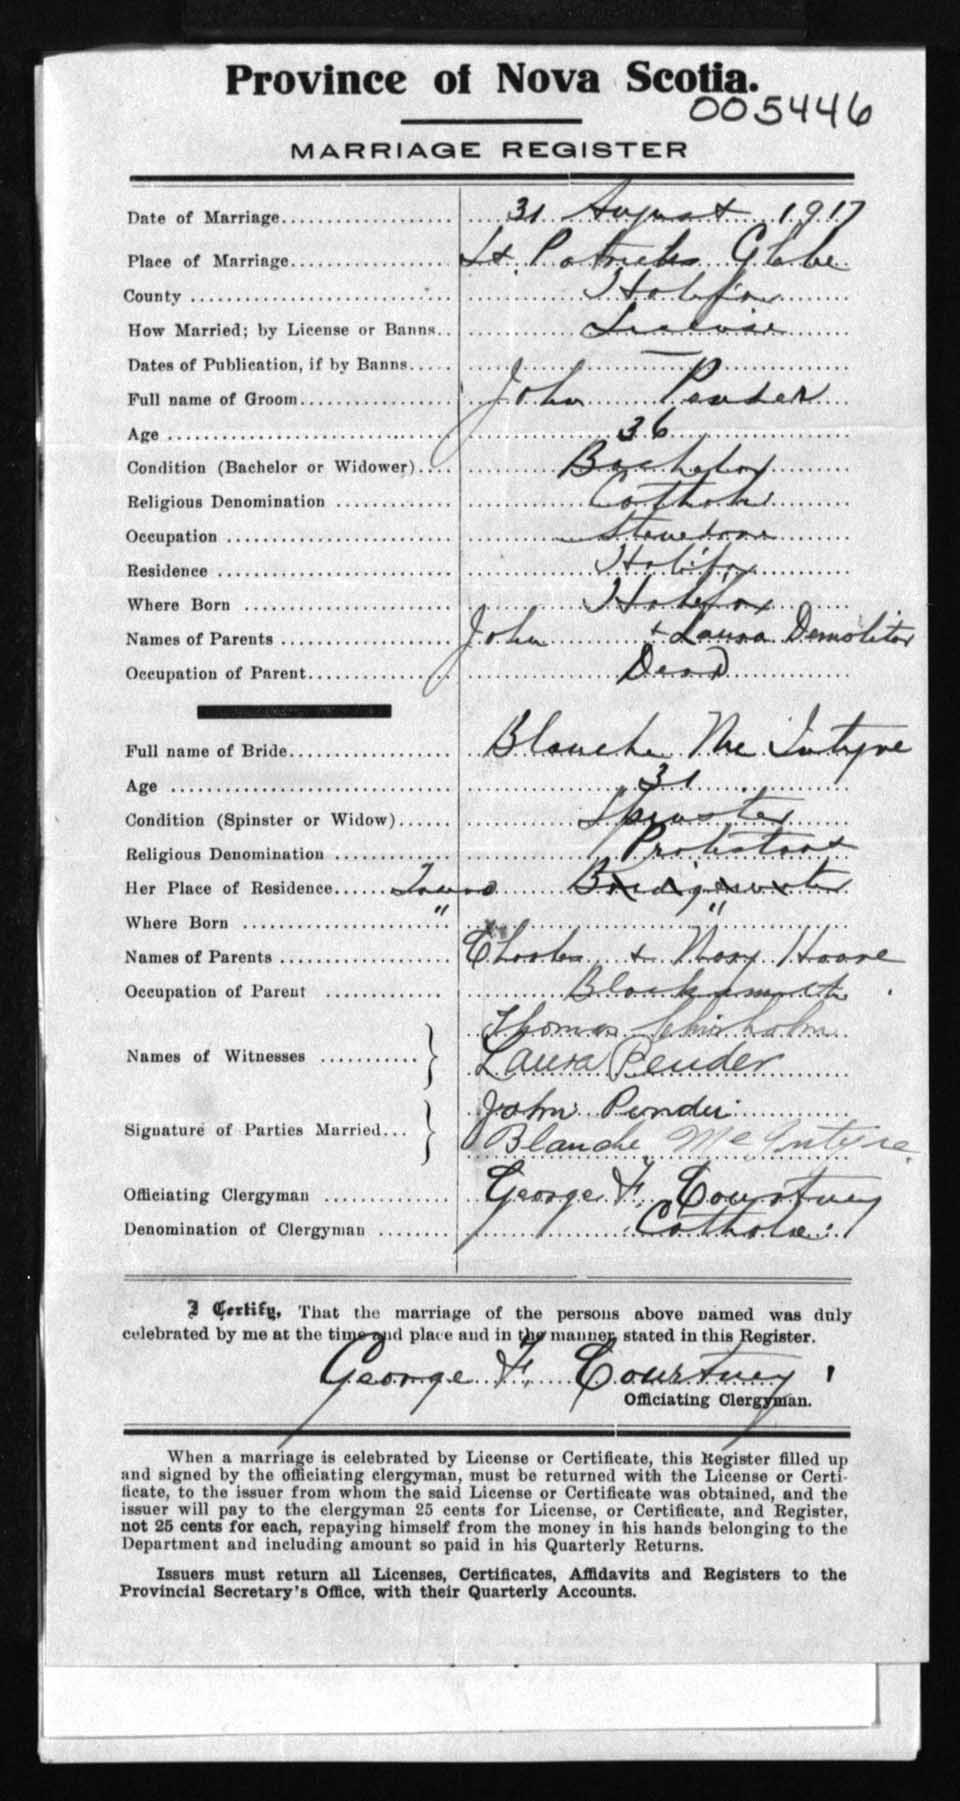 Province of Nova Scotia.
005446
MARRIAGE REGISTER
Date of Marriage 31 August 1917
Place of Marriage St. Patricks Glebe
County Halifax
How Married; by License or Banns License
Dates of Publication, if by Banns —
Full name of Groom John Pender
Age 36
Condition (Bachelor or Widower) Bachelor
Religious Denomination Catholic
Occupation Stevedore
Residence Halifax
Where Born Halifax
Names of Parents John + Laura Demolitor
Occupation of Parent Dead
Full name of Bride Blanche Mc Intyre
Age 31
Condition (Spinster or Widow) Spinster
Religious Denomination Protestant
Her Place of Residence Truro Bridgewater
Where Born " "
Names of Parents Charles + Mary Hoare
Occupation of Parent Blacksmith
Thomas Chisholm
Names of Witnesses
Laura Pender
John Pender
Signature of Parties Married
Blanche McIntyre
Officiating Clergyman George F. Courtney
Denomination of Clergyman Catholic
I Certify, That the marriage of the persons above named was duly
celebrated by me at the time and place and in the manner stated in this Register.
George F. Courtney
Officiating Clergyman.
When a marriage is celebrated by License or Certificate, this Register filled up
and signed by the officiating clergyman, must be returned with the License or Certi-
ficate, to the issuer from whom the said License or Certificate was obtained, and the
issuer will pay to the clergyman 25 cents for License, or Certificate, and Register,
not 25 cents for each, repaying himself from the money in his hands belonging to the
Department and including amount so paid in his Quarterly Returns.
Issuers must return all Licenses, Certificates, Affidavits and Registers to the
Provincial Secretary's Office, with their Quarterly Accounts.